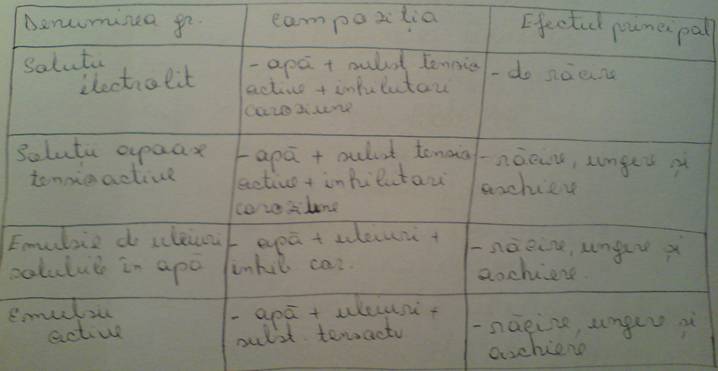 Denumirea gr.
Compoziția
Efectul principal
Soluții
electrolit
- apă + subst tensio
active + inhilutari
coroziune
- de răcire
Soluții apoase
tensioactive
- apă + subst tensio
active + inhilutari
coroziune
- răcire, ungere și
aschiere
Emulsie de uleiuri
solubile în apă
- apă + uleiuri +
inhib cor.
- răcire, ungere și
aschiere.
Emulsii
active
- apă + uleiuri +
subst. tensactv
- răcire, ungere și
aschiere